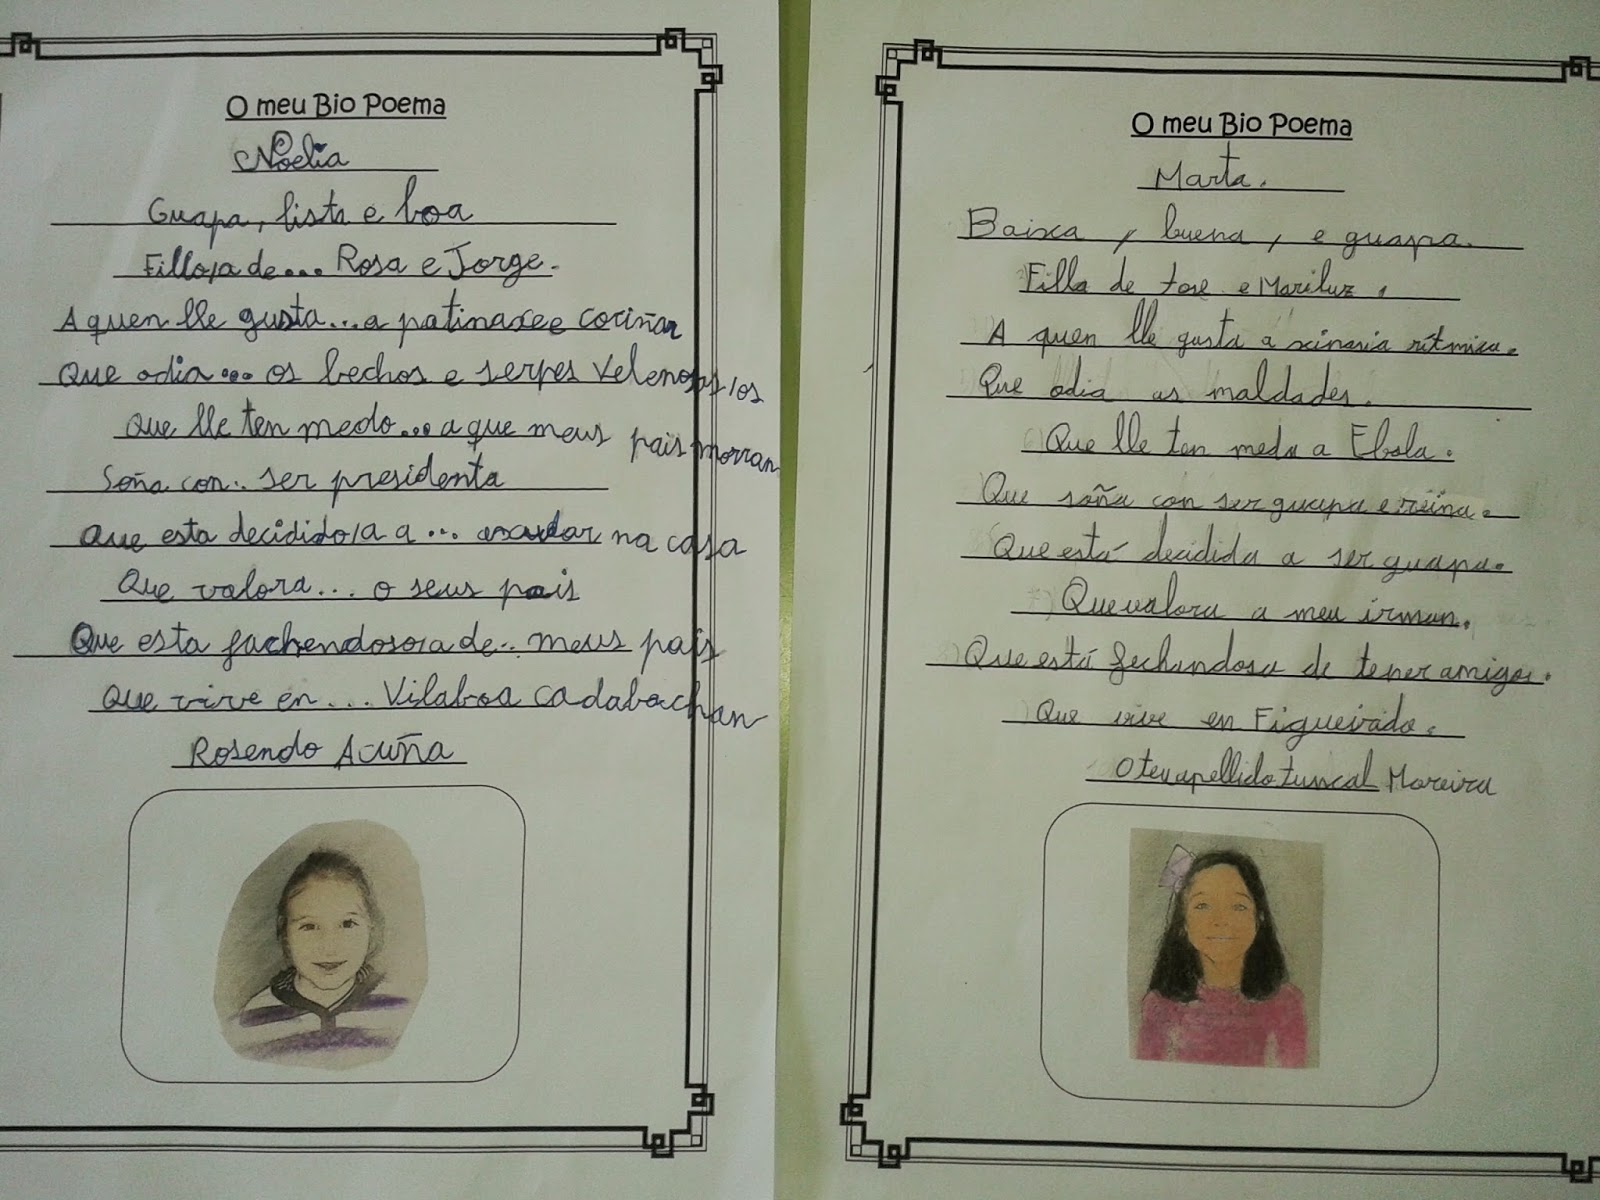 O meu Bio Poema
Noelia
Guapa, lista e boa
Fillo/a de... Rosa e Jorge.
A quen lle gusta...a patinaxe e coriñar
Que odia... os bechos e serpes velenosas/os
Que lle ten medo... a que meus pais morran
Soña con.. ser presidenta
Que esta decidido/a a ... axudar na casa
Que valora... o seus pais
Que esta fachendoso/a de.. meus pais
Que vive en... Vilaboa cadabachan
Rosendo Acuña
O meu Bio Poema
Marta.
Baixa, buena, e guapa.
Filla de Jose e Mariluz.
A quen lle gusta a xinasia rítmica.
Que odia as maldades.
Que lle ten medo a Ebola.
Que soña con ser guapa e reina.
Que está decidida a ser guapa.
Que valora a meu irman.
Que está fechandosa de tener amigos.
Que vive en Figueirido.
O teu apellido tuncal Moreira